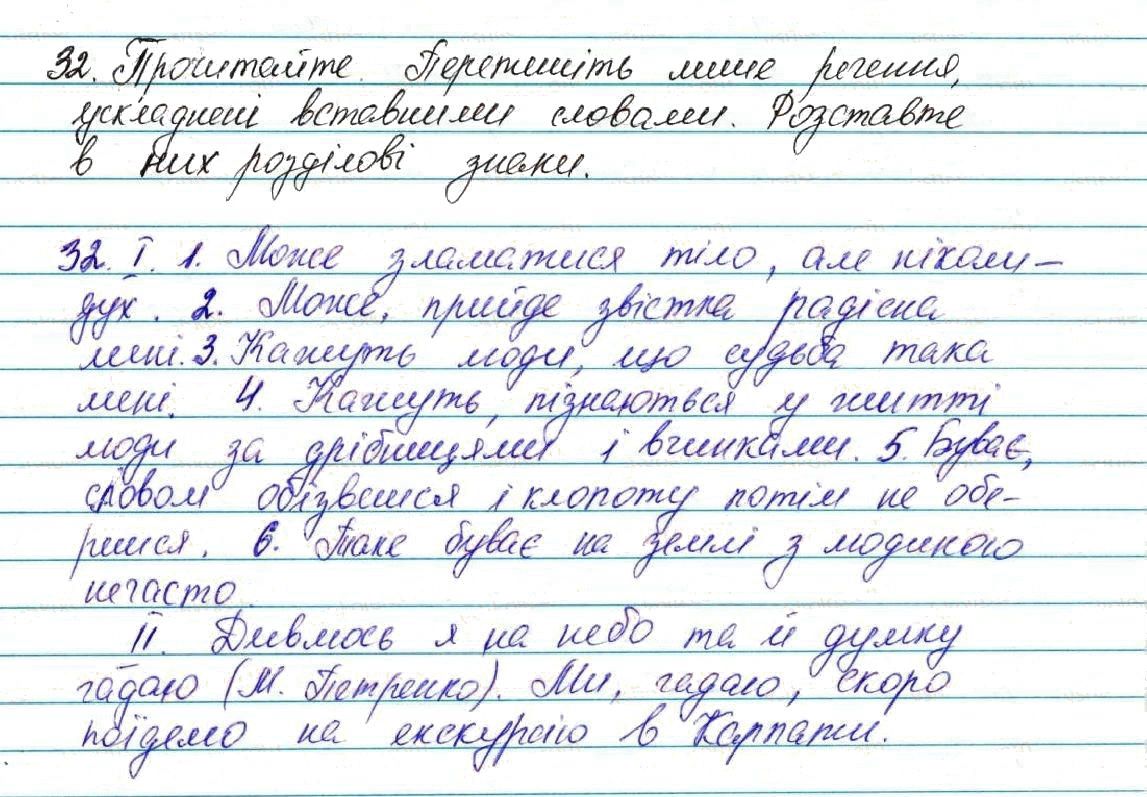 32. Прочитайте. Перепишіть лише речення,
ускладнені вставними словами. Розставте
в них розділові знаки.
32. I. 1. Може зламатися тіло, але ніколи –
дух. 2. Може, прийде звістка радісна
мені. 3. Кажуть люди, що судьба така
мені. 4. Кажуть, пізнаються у житті
люди за дрібницями і вчинками. 5. Буває,
словом обізвешся і клопоту потім не обе-
решся. 6. Таке буває на землі з людиною
нечасто.
II. Дивлюсь я на небо та й думку
гадаю (М. Петренко). Ми, гадаю, скоро
поїдемо на екскурсію в Карпати.